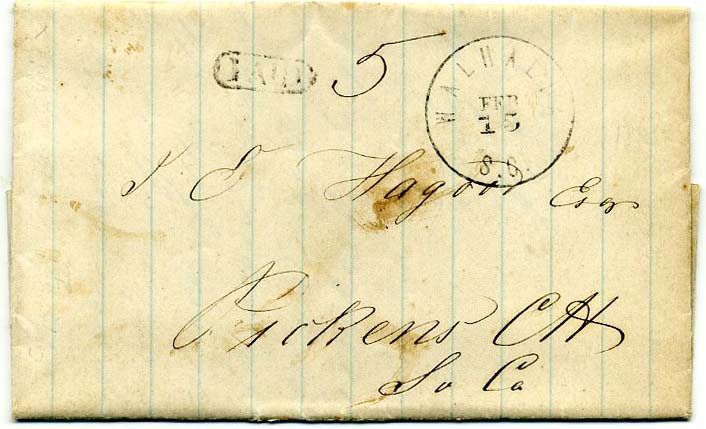 PAID 5
WALHALLA
FEB
15
S.C.
J E Hagood Esqr
Pickens CH
So Ca